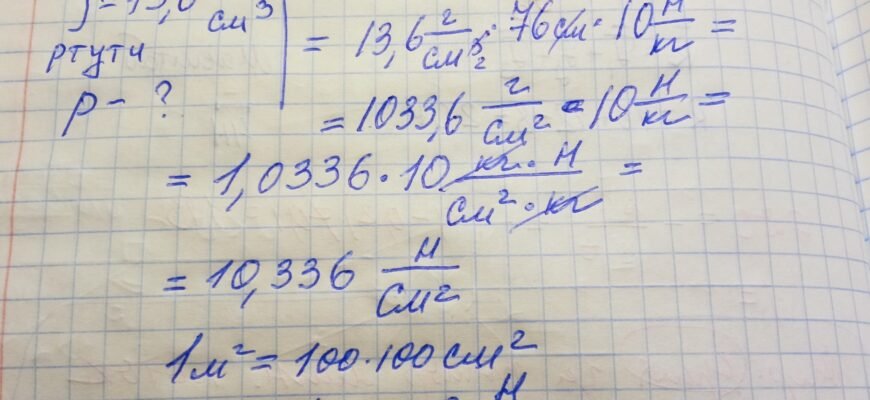 ртути см³ = 13,6 г/см³ · 76 см · 10 Н/кг =
p - ? = 1033,6 г/см² · 10 Н/кг =
= 1,0336 · 10 кг · Н/см² · кг =
= 10,336 Н/см²
1 м² = 100 · 100 см²